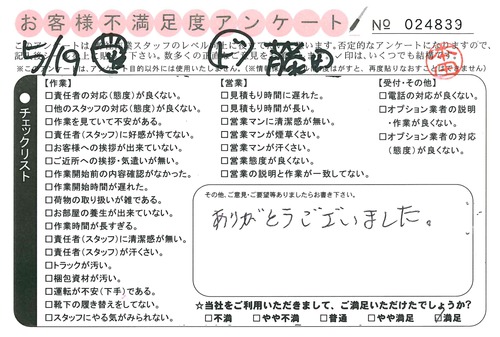 お客様不満足度アンケート
№ 024839
5/19
チェックリスト
【作業】
□責任者の対応(態度)が良くない。
□他のスタッフの対応(態度)が良くない。
□作業を見ていて不安がある。
□責任者(スタッフ)に好感が持てない。
□お客様への挨拶が出来ていない。
□ご近所への挨拶・気遣いが無い。
□作業開始前の内容確認がなかった。
□作業開始時間が遅れた。
□荷物の取り扱いが雑である。
□お部屋の養生が出来ていない。
□作業時間が長すぎる。
□責任者(スタッフ)に清潔感が無い。
□責任者(スタッフ)が汗くさい。
□トラックが汚い。
□梱包資材が汚い。
□運転が不安(下手)である。
□靴下の履き替えをしてない。
□スタッフにやる気がみられない。
【営業】
□見積もり時間に遅れた。
□見積もり時間が長い。
□営業マンに清潔感が無い。
□営業マンが煙草くさい。
□営業マンが汗くさい。
□営業態度が良くない。
□営業の説明と作業が一致してない。
【受付・その他】
□電話の対応が良くない。
□オプション業者の説明
・作業が良くない。
□オプション業者の対応
(態度)が良くない。
その他、ご意見・ご要望等ありましたらお書き下さい。
ありがとうございました。
☆当社をご利用いただきまして、ご満足いただけたでしょうか?
□不満 □やや不満 □普通 □やや満足 ☑満足